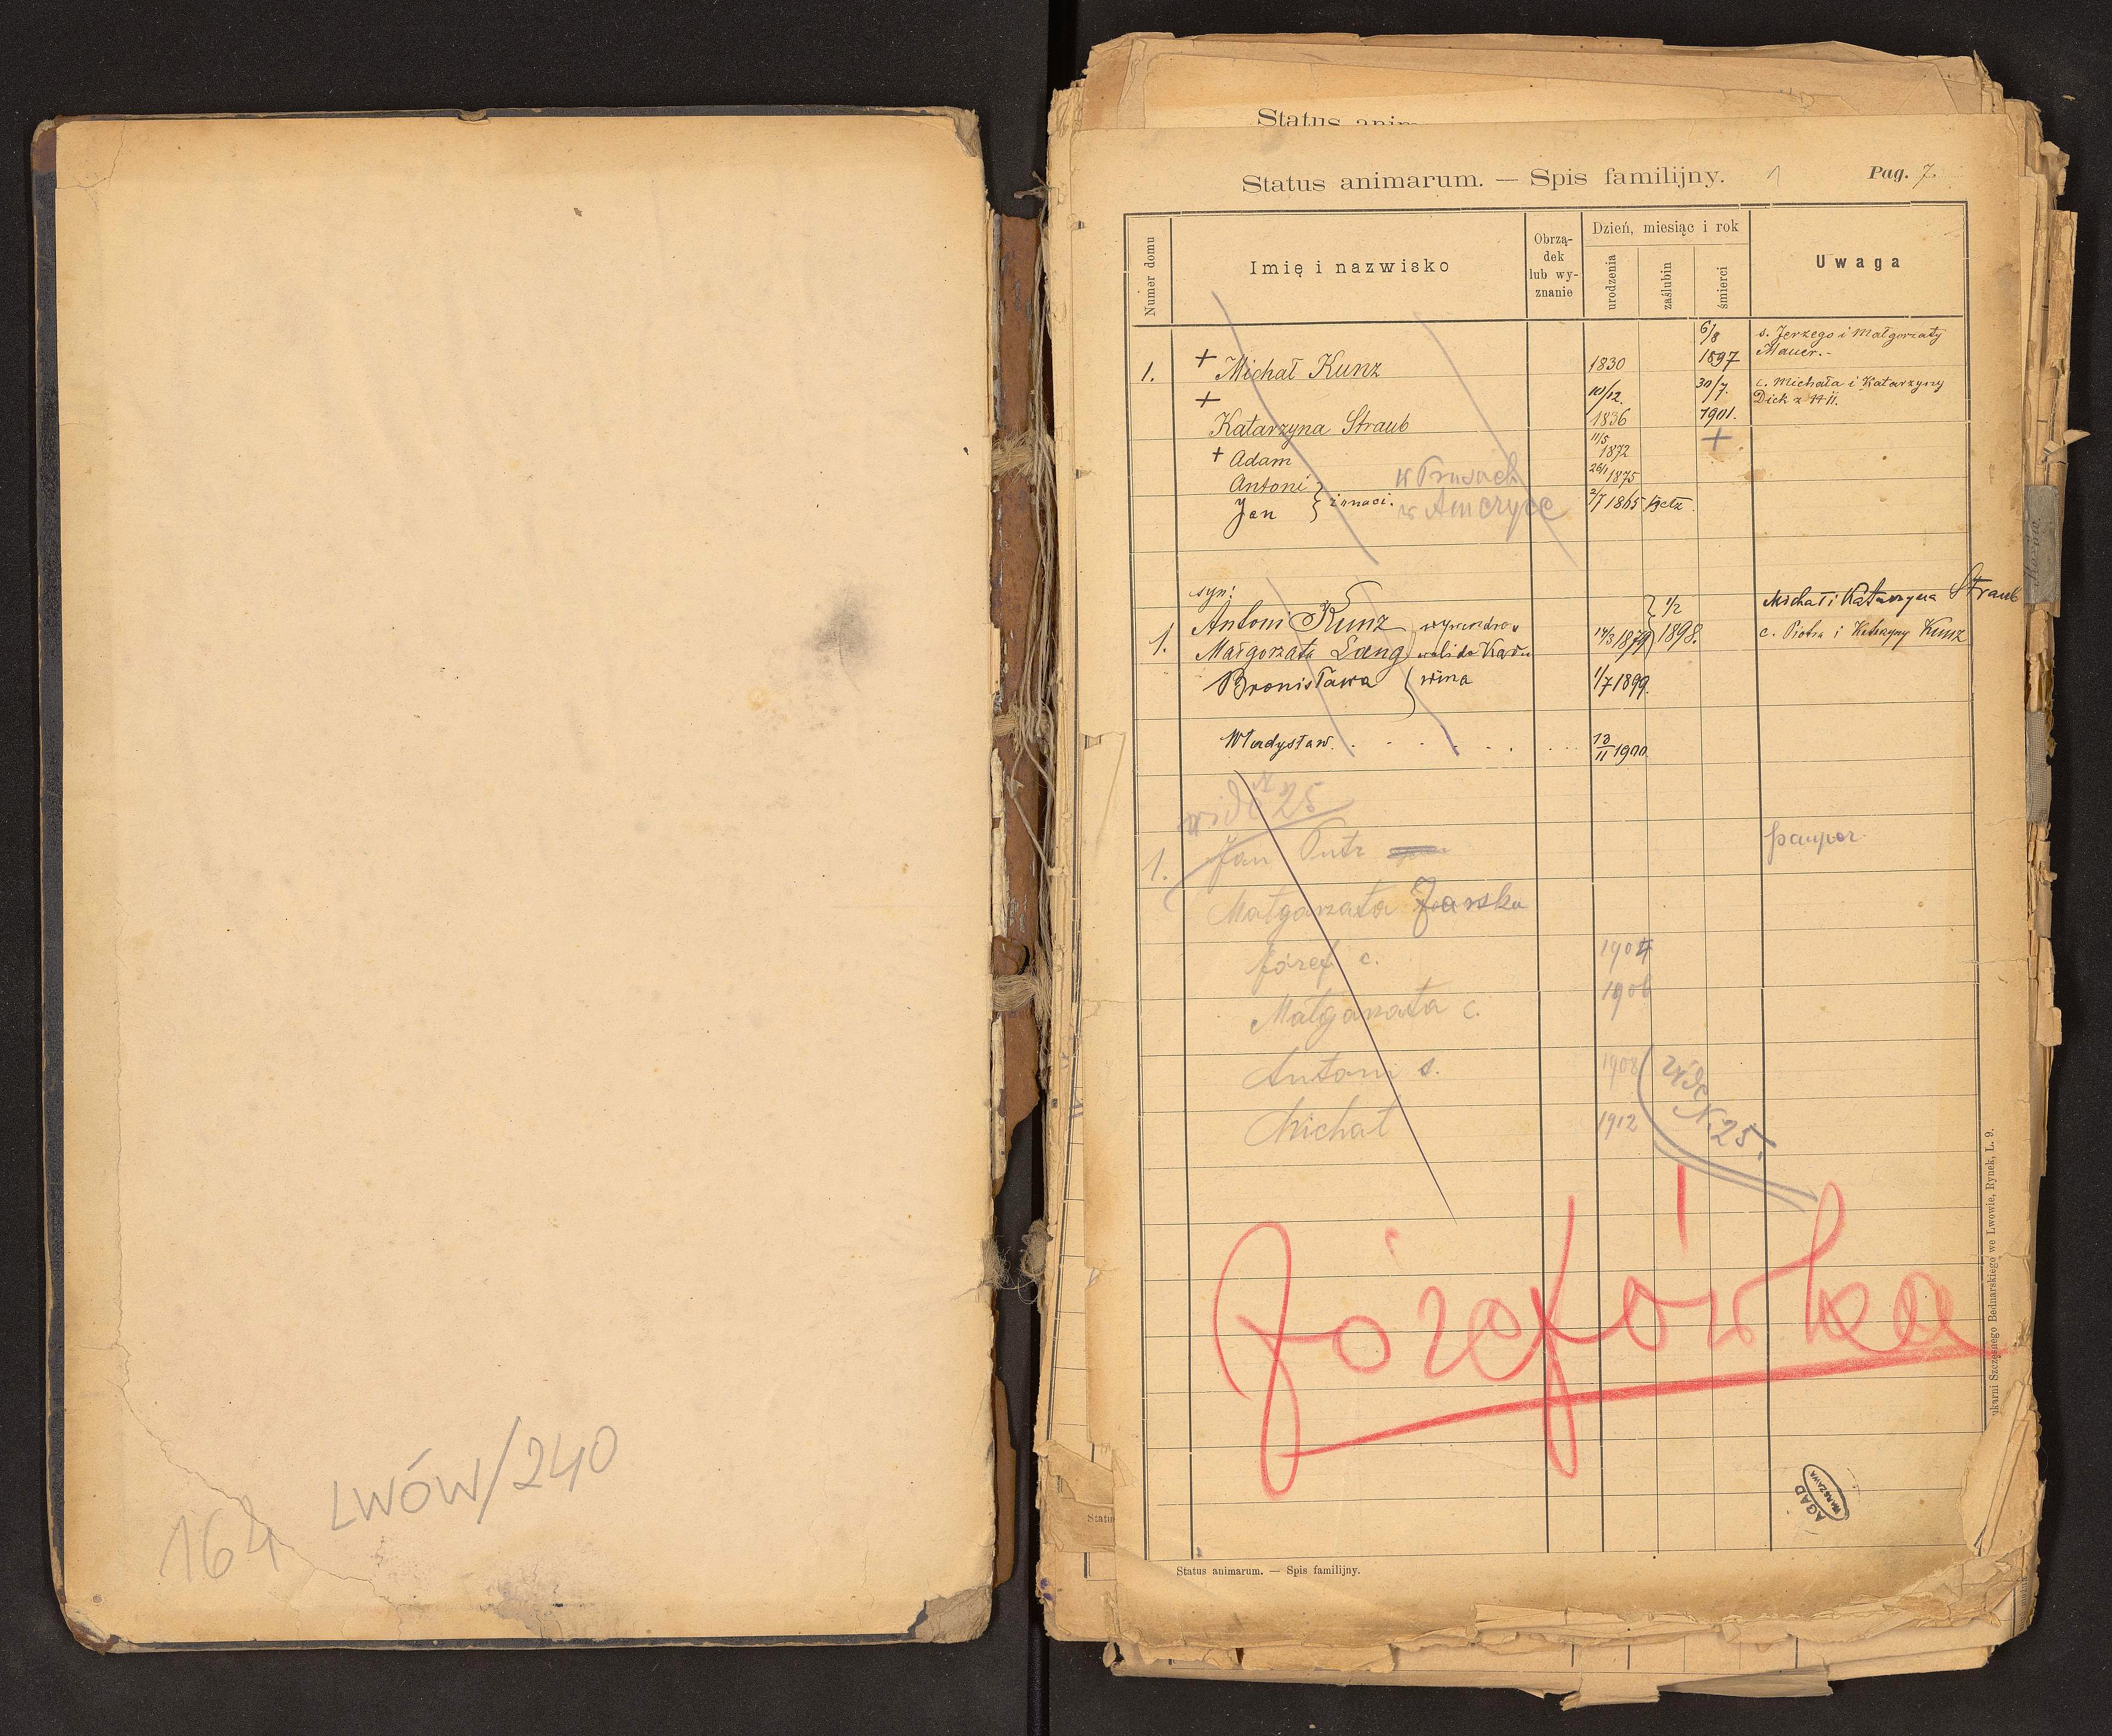 LWÓW/240
164
Status anim
Status animarum. — Spis familijny. 1 Pag. 7.
Numer domu
Imię i nazwisko
Obrzą-
dek
lub wy-
znanie
Dzień, miesiąc i rok
urodzenia
zaślubin
śmierci
Uwaga
1. + Michał Kunz 1830 6/8 1897 s. Jerzego i Małgorzaty
Mauer.-
+ Katarzyna Straub 10/12. 1836 30/7. 1901. c. Michała i Katarzyny
Dick z
+ Adam 11/5 1872 +
Antoni w Prusach 26/1 1875
Jan żonaci. w Ameryce 2/7 1865
syn:
1. Antoni Kunz 1/2 1898. Michał i Katarzyna Straub
Małgorzata Lang 14/3 1879 c. Piotra i Katarzyny Kunz
Bronisława 1/7 1899.
Władysław. 13/11 1900
vide N 25
1. Jan Putz pauper
Małgorzata Jarska
Józef c. 1904
Małgorzata c. 1906
Antoni s. 1908 vide
N. 25.
Michał 1912
Józefówka
AGAD
WARSZAWA
ukarni Szczęsnego Bednarskiego we Lwowie, Rynek, L. 9.
Status animarum. — Spis familijny.